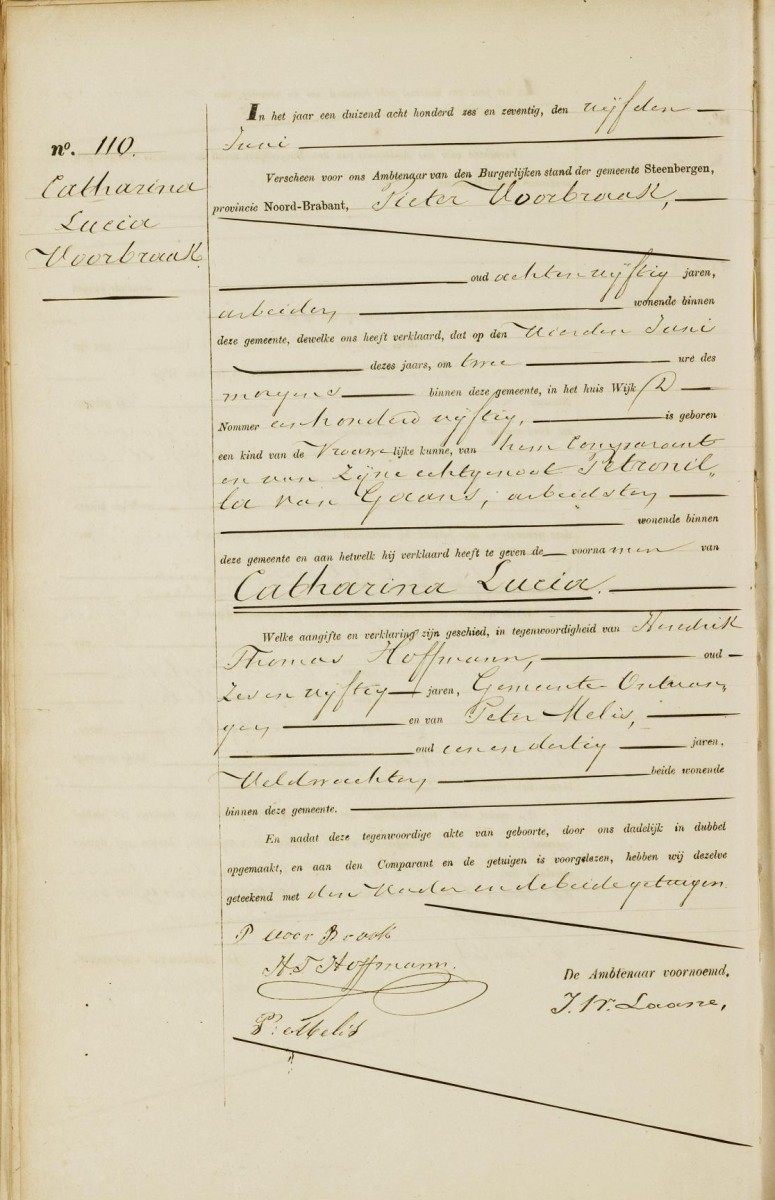 n°. 110.
Catharina
Lucia
Voorbraak.
In het jaar een duizend acht honderd zes en zeventig, den vijfden
Juni
Verscheen voor ons Ambtenaar van den Burgerlijken stand der gemeente Steenbergen,
provincie Noord-Brabant, Pieter Voorbraak,
oud acht en vijftig jaren,
arbeider, wonende binnen
deze gemeente, dewelke ons heeft verklaard, dat op den Vierden Juni
dezes jaars, om twee ure des
morgens binnen deze gemeente, in het huis Wijk D
Nommer een honderd vijftig, is geboren
een kind van de Vrouwelijke kunne, van hem Comparant
en van Zijne echtgenoot Petronil„
la van Gaans, arbeidster,
wonende binnen
deze gemeente en aan hetwelk hij verklaard heeft te geven de voornamen van
Catharina Lucia.
Welke aangifte en verklaring zijn geschied, in tegenwoordigheid van Hendrik
Thomas Hoffmann, oud
Zes en vijftig jaren, Gemeente Ontvan„
ger, en van Peter Melis,
oud een en dertig jaren,
Veldwachter, beide wonende
binnen deze gemeente.
En nadat deze tegenwoordige akte van geboorte, door ons dadelijk in dubbel
opgemaakt, en aan den Comparant en de getuigen is voorgelezen, hebben wij dezelve
geteekend met den Vader en de beide getuigen.
P voor Braak
H.T Hoffmann.
De Ambtenaar voornoemd,
P: Melis